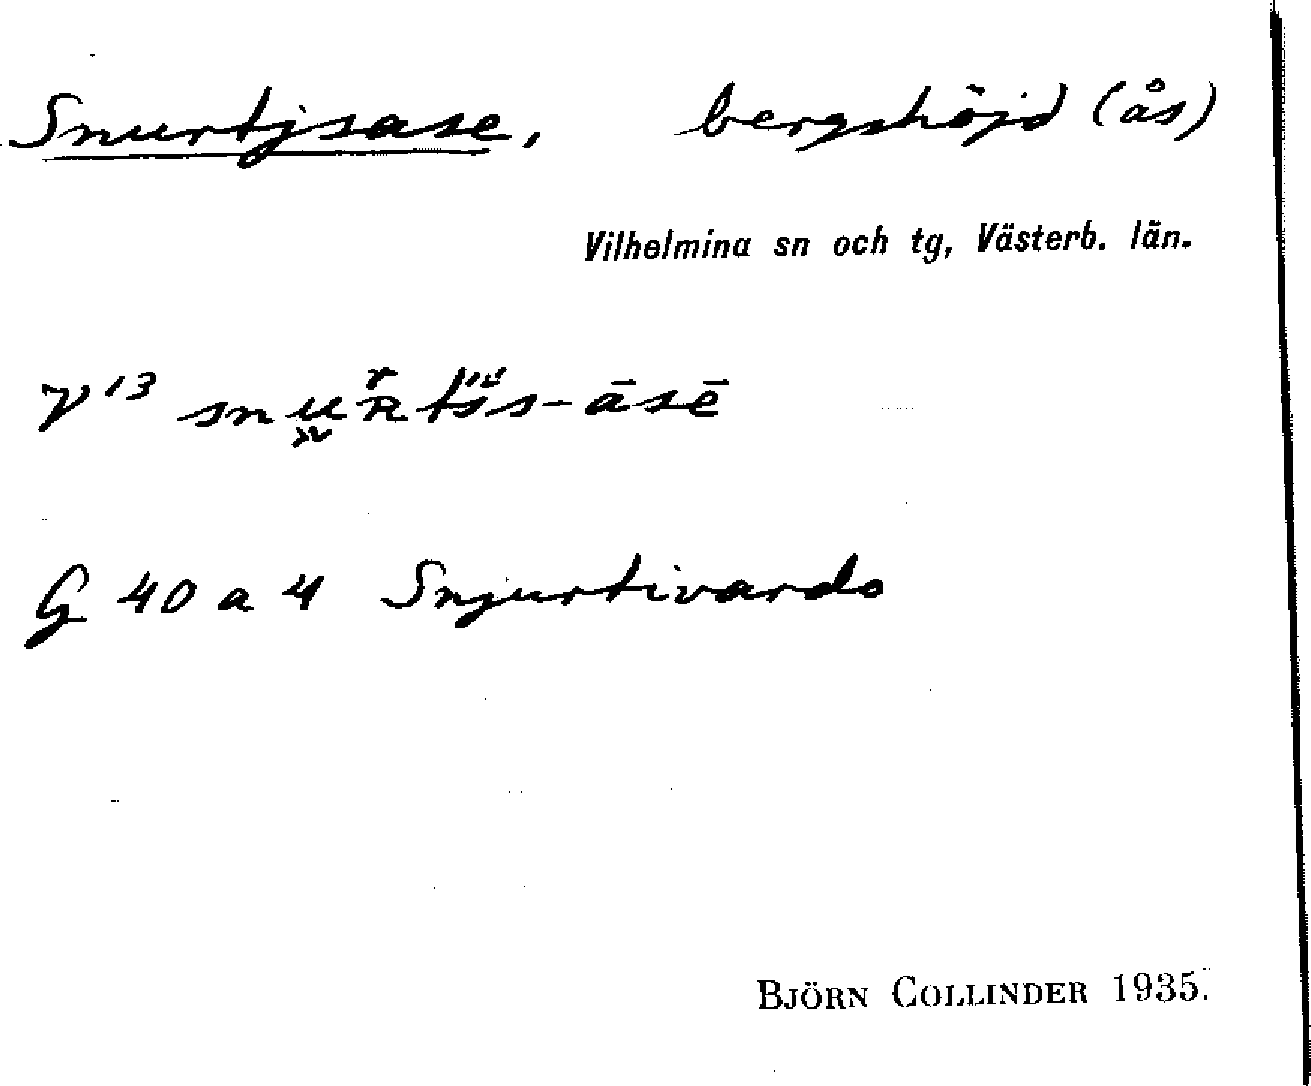 Snurtjsase, bergshöjd (ås)
Vilhelmina sn och tg, Västerb. län.
V13
G 40 a 4 Snjurtivardo
BJÖRN COLLINDER 1935.